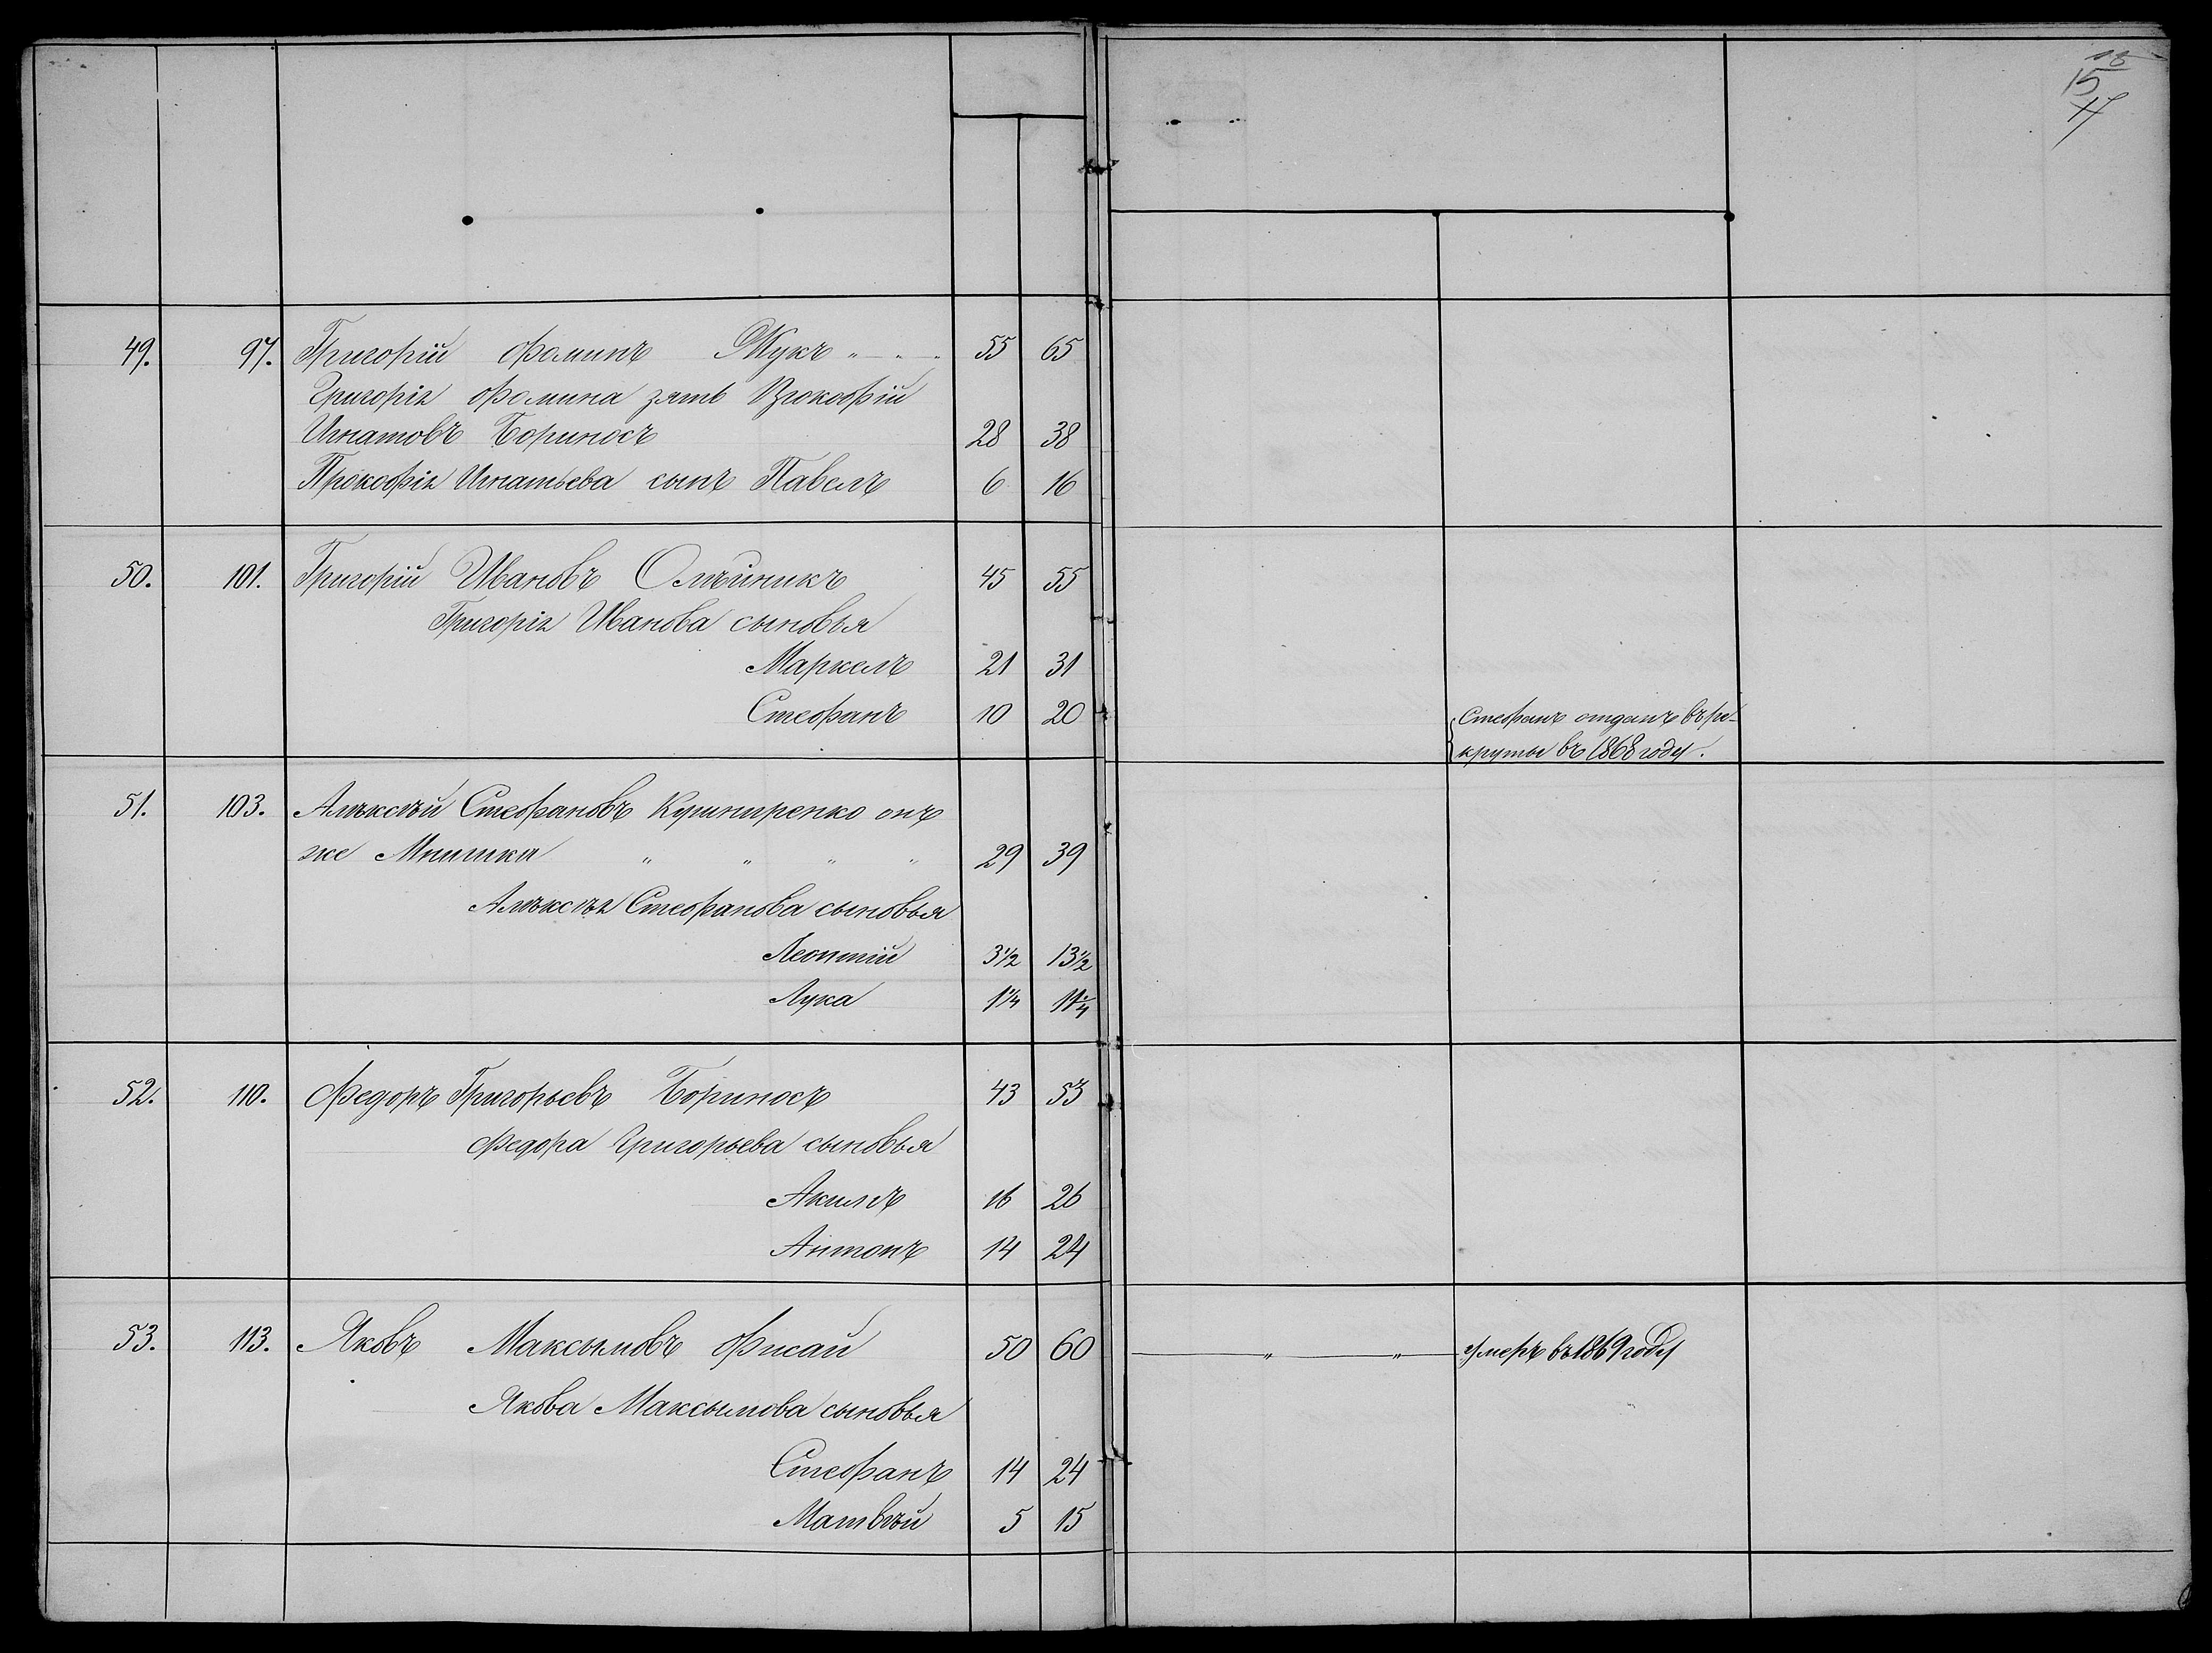 15
49. 97. Григорій Фоминъ Жукъ " — " — " 55 65
Григорія Фомина зять Прокофій
Игнатовъ Бориносъ 28 38
Прокофія Игнатьева сынъ Павелъ 6 16
50. 101. Григорій Ивановъ Олѣйникъ 45 55
Григорія Иванова сыновья
Маркелъ 21 31
Стефанъ 10 20
Стефанъ отданъ въ ре-
круты въ 1868 году.
51. 103. Алѣксѣй Стефановъ онъ
же 29 39
Алѣксѣя Стефанова сыновья
Леонтій 3½ 13½
Лука 1¼ 11¼
52. 110. Федоръ Григорьевъ Бориносъ 43 53
Федора Григорьева сыновья
Акилъ 16 26
Антонъ 14 24
53. 113. Яковъ Максымовъ Фисай 50 60 — " — " — умеръ въ 1869 году
Якова Максымова сыновья
Стефанъ 14 24
Матвѣй 5 15